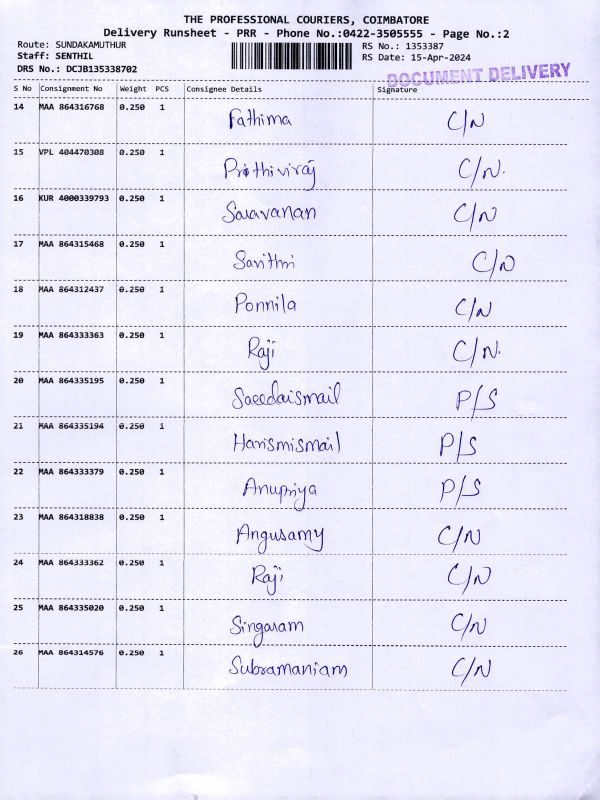 THE PROFESSIONAL COURIERS, COIMBATORE
Delivery Runsheet - PRR - Phone No.:0422-3505555 - Page No.:2
Route: SUNDAKAMUTHUR RS No.: 1353387
Staff: SENTHIL RS Date: 15-Apr-2024
DRS No.: DCJB135338702
DOCUMENT DELIVERY
S No Consignment No Weight PCS Consignee Details Signature
14 MAA 864316768 0.250 1 Fathima C/N
15 VPL 404470308 0.250 1 Prithiviraj C/N.
16 KUR 4000339793 0.250 1 Saravanan C/N
17 MAA 864315468 0.250 1 Savithri C/N
18 MAA 864312437 0.250 1 Ponnila C/N
19 MAA 864333363 0.250 1 Raji C/N.
20 MAA 864335195 0.250 1 Saeedaismail P/S
21 MAA 864335194 0.250 1 Harismismail P/S
22 MAA 864333379 0.250 1 Anupriya P/S
23 MAA 864318838 0.250 1 Angusamy C/N
24 MAA 864333362 0.250 1 Raji C/N
25 MAA 864335020 0.250 1 Singaram C/N
26 MAA 864314576 0.250 1 Subramaniam C/N